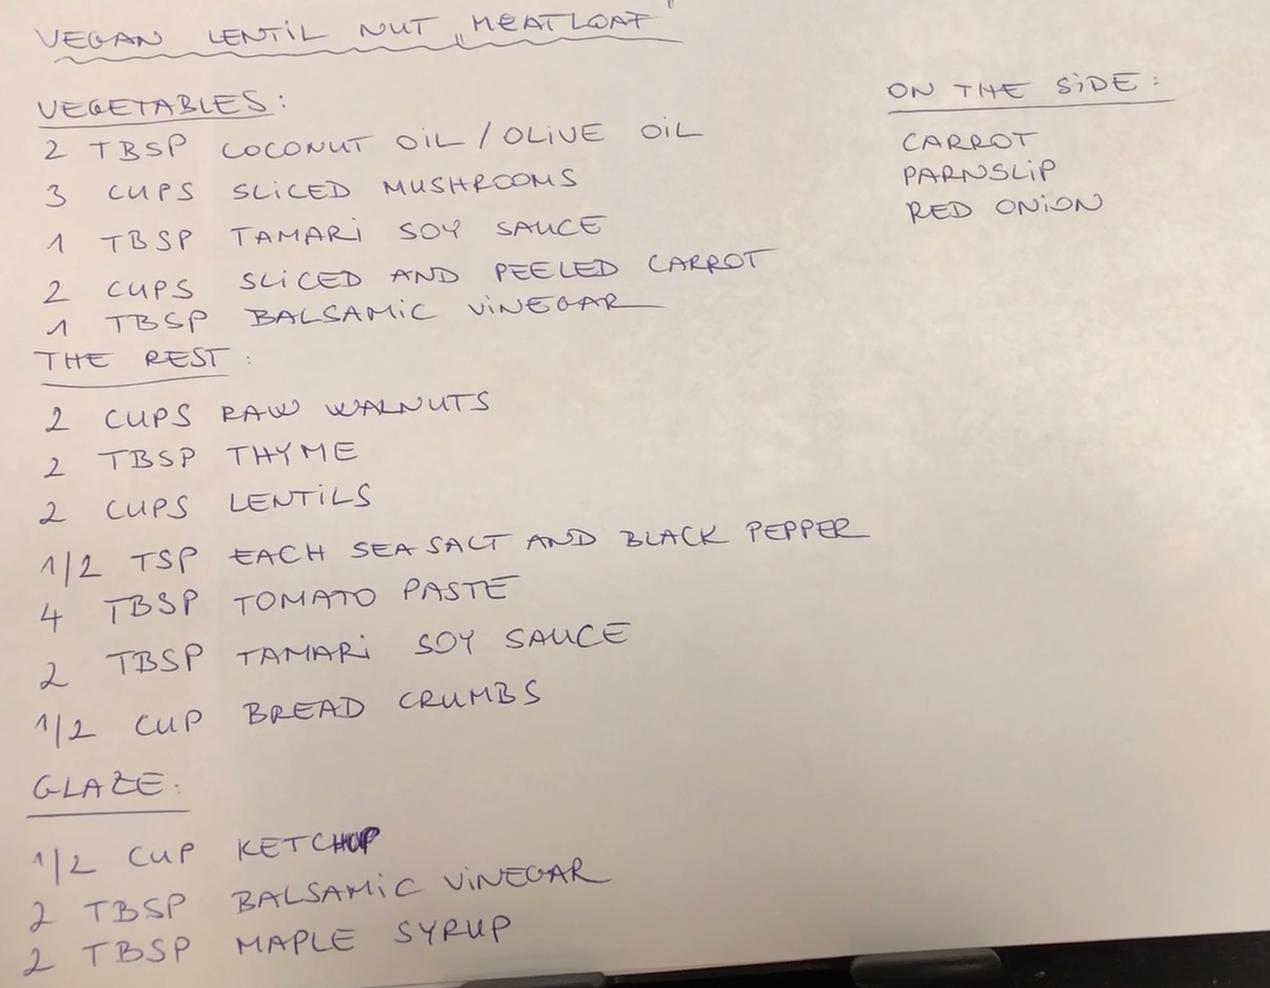 VEGAN LENTIL NUT „MEATLOAF"
VEGETABLES:
2 TBSP COCONUT OIL / OLIVE OIL
3 CUPS SLICED MUSHROOMS
1 TBSP TAMARI SOY SAUCE
2 CUPS SLICED AND PEELED CARROT
1 TBSP BALSAMIC VINEGAR
THE REST:
2 CUPS RAW WALNUTS
2 TBSP THYME
2 CUPS LENTILS
1/2 TSP EACH SEA SALT AND BLACK PEPPER
4 TBSP TOMATO PASTE
2 TBSP TAMARI SOY SAUCE
1/2 CUP BREAD CRUMBS
GLAZE:
1/2 CUP KETCHUP
2 TBSP BALSAMIC VINEGAR
2 TBSP MAPLE SYRUP
ON THE SIDE:
CARROT
PARNSLIP
RED ONION